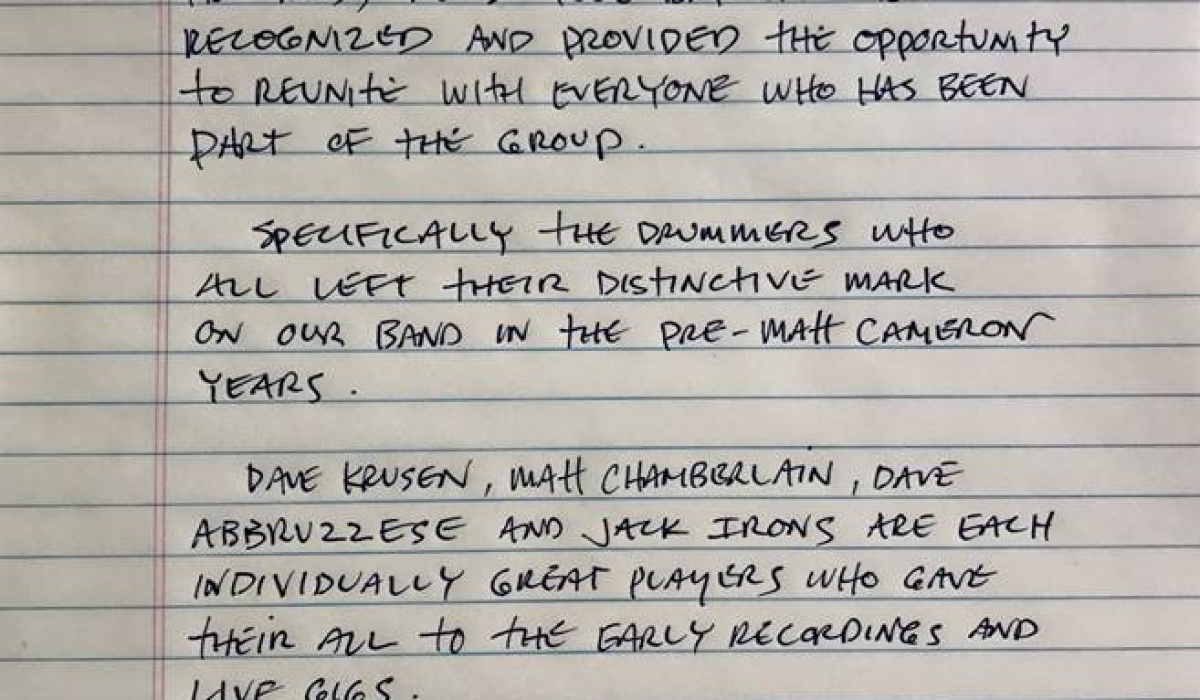 RECOGNIZED AND PROVIDED THE OPPORTUNITY
TO REUNITE WITH EVERYONE WHO HAS BEEN
PART OF THE GROUP.
SPECIFICALLY THE DRUMMERS WHO
ALL LEFT THEIR DISTINCTIVE MARK
ON OUR BAND IN THE PRE-MATT CAMERON
YEARS.
DAVE KRUSEN, MATT CHAMBERLAIN, DAVE
ABBRUZZESE AND JACK IRONS ARE EACH
INDIVIDUALLY GREAT PLAYERS WHO GAVE
THEIR ALL TO THE EARLY RECORDINGS AND
LIVE GIGS.